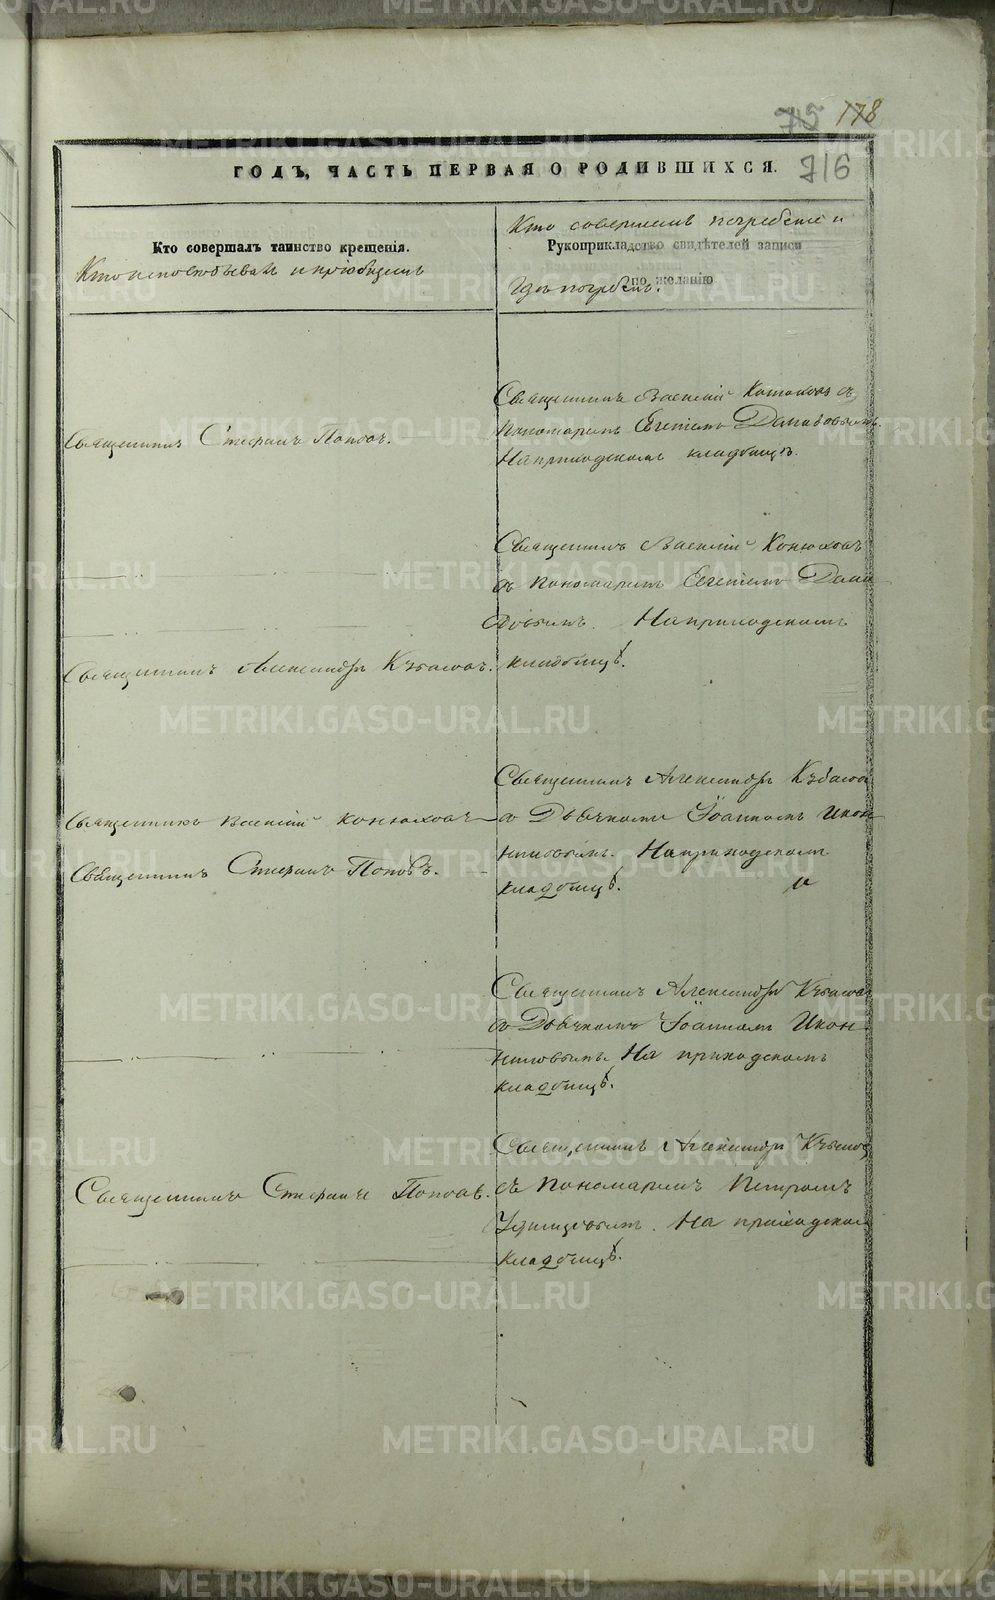 715 178
ГОДЪ, ЧАСТЬ ПЕРВАЯ О РОДИВШИХСЯ. 716
Кто совершалъ таинство крещенія.
Кто исповѣдывалъ и пріобщалъ
Кто совершалъ погребеніе и
Рукоприкладство свидѣтелей записи
по желанію
гдѣ погребенъ.
Священникъ Стефанъ Поповъ.
Священникъ Василій Конюховъ съ
пономаремъ Евгеніемъ
На приходскомъ кладбищѣ.
Священникъ Василій Конюховъ
съ пономаремъ Евгеніемъ
На приходскомъ
кладбищѣ.
Священникъ Александръ
Священникъ Василій Конюховъ
Священникъ Стефанъ Поповъ.
Священникъ Александръ
съ Дьячкомъ Іоанномъ Икон
никовымъ. На приходскомъ
кладбищѣ.
Священникъ Александръ
съ Дьячкомъ Іоанномъ Икон
никовымъ. На приходскомъ
кладбищѣ.
Священникъ Стефанъ Поповъ.
Священникъ Александръ
съ пономаремъ Петромъ
Удинцовымъ. На приходском
кладбищѣ.
METRIKI.GASO-URAL.RU